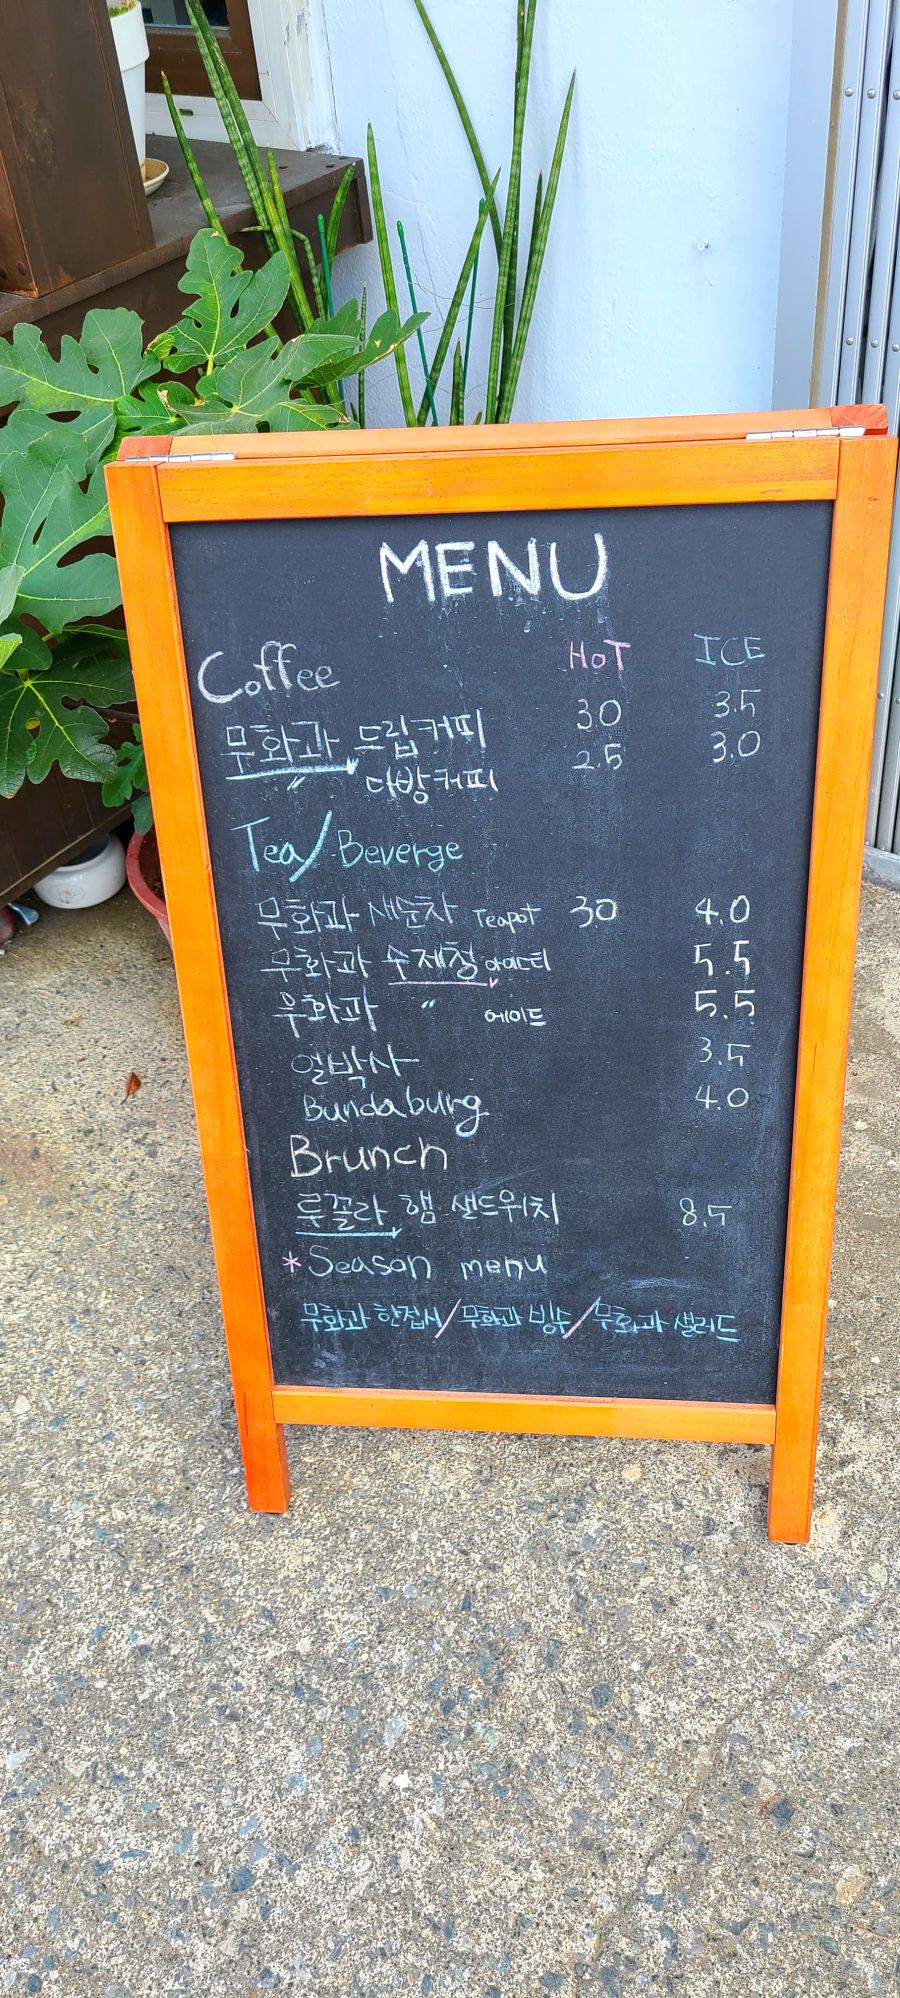 MENU
Coffee HOT ICE
무화과 드립커피 3.0 3.5
" 다방커피 2.5 3.0
Tea/Beverge
무화과 새순차 Teapot 3.0 4.0
무화과 수제청 아이스티 5.5
무화과 " 에이드 5.5
얼박사 3.5
Bundaburg 4.0
Brunch
루꼴라 햄 샌드위치 8.5
*Season menu
무화과 한접시/무화과 빙수/무화과 샐러드